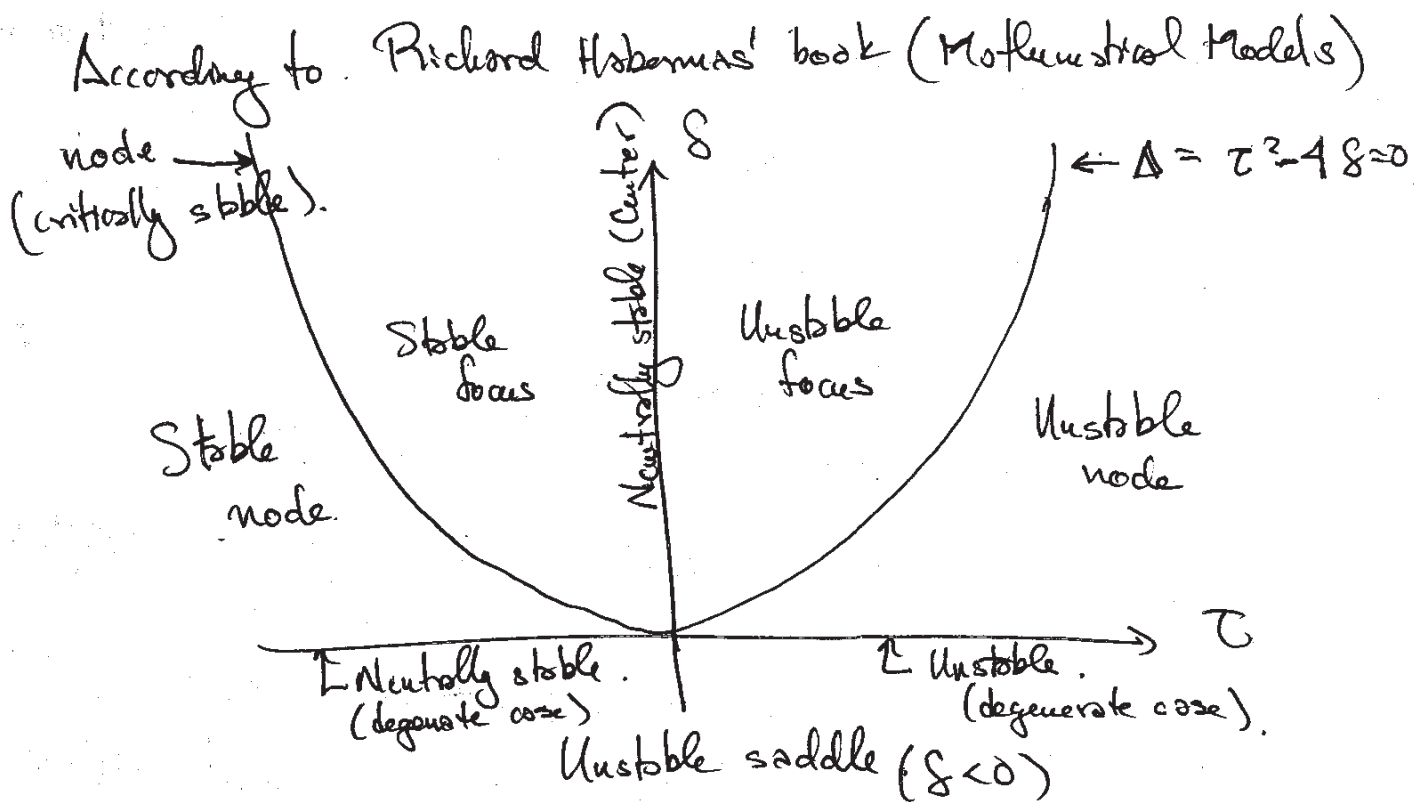 According to Richard Habermas' book (Mathematical Models)
node
(critically stable).
δ
← Δ = τ²-4δ=0
Neutrally stable (Center)
Stable
focus
Unstable
focus
Stable
node.
Unstable
node
τ
Neutrally stable.
(degenate case)
Unstable.
(degenerate case).
Unstable saddle (δ<0)